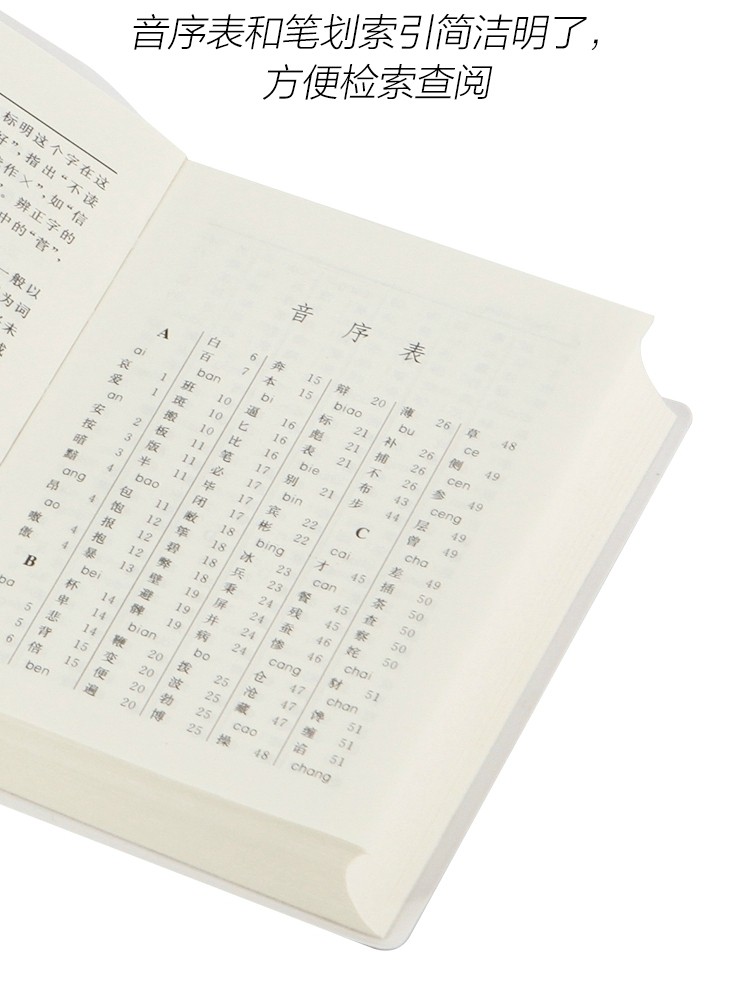 音序表和笔划索引简洁明了，
方便检索查阅
标明这个字在这
好”，指出“不读
作×”，如“信
。辨正字的
中的“菅”，
一般以
为词
未
音序表
A
ai
哀 1
爱 1
an
安 2
按 3
暗 3
黯 4
ang
昂 4
ao
嗷 4
傲 4
B
ba
5
5
6
白 6
百 7
ban
班 10
斑 10
搬 10
板 11
版 11
半 11
bao
包 11
饱 12
报 12
抱 12
暴 13
bei
杯 14
卑 14
悲 14
背 15
倍 15
ben
奔 15
本 15
bi
逼 16
匕 16
比 16
笔 17
必 17
毕 17
闭 17
敝 18
筚 18
碧 18
弊 18
壁 19
避 19
髀 19
bian
鞭 20
变 20
便 20
遍 20
辩 20
biao
标 21
彪 21
表 21
bie
别 21
bin
宾 22
彬 22
bing
冰 23
兵 23
秉 24
屏 24
并 24
病 24
bo
拨 25
波 25
勃 25
博 25
薄 26
bu
补 26
捕 26
不 26
布 43
步 44
C
cai
才 45
can
餐 45
残 45
蚕 46
惨 46
cang
仓 47
沧 47
藏 47
cao
操 48
草 48
ce
侧 49
cen
参 49
ceng
层 49
曾 49
cha
差 49
插 50
茶 50
查 50
察 50
姹 50
chai
豺 51
chan
馋 51
缠 51
谄 51
chang